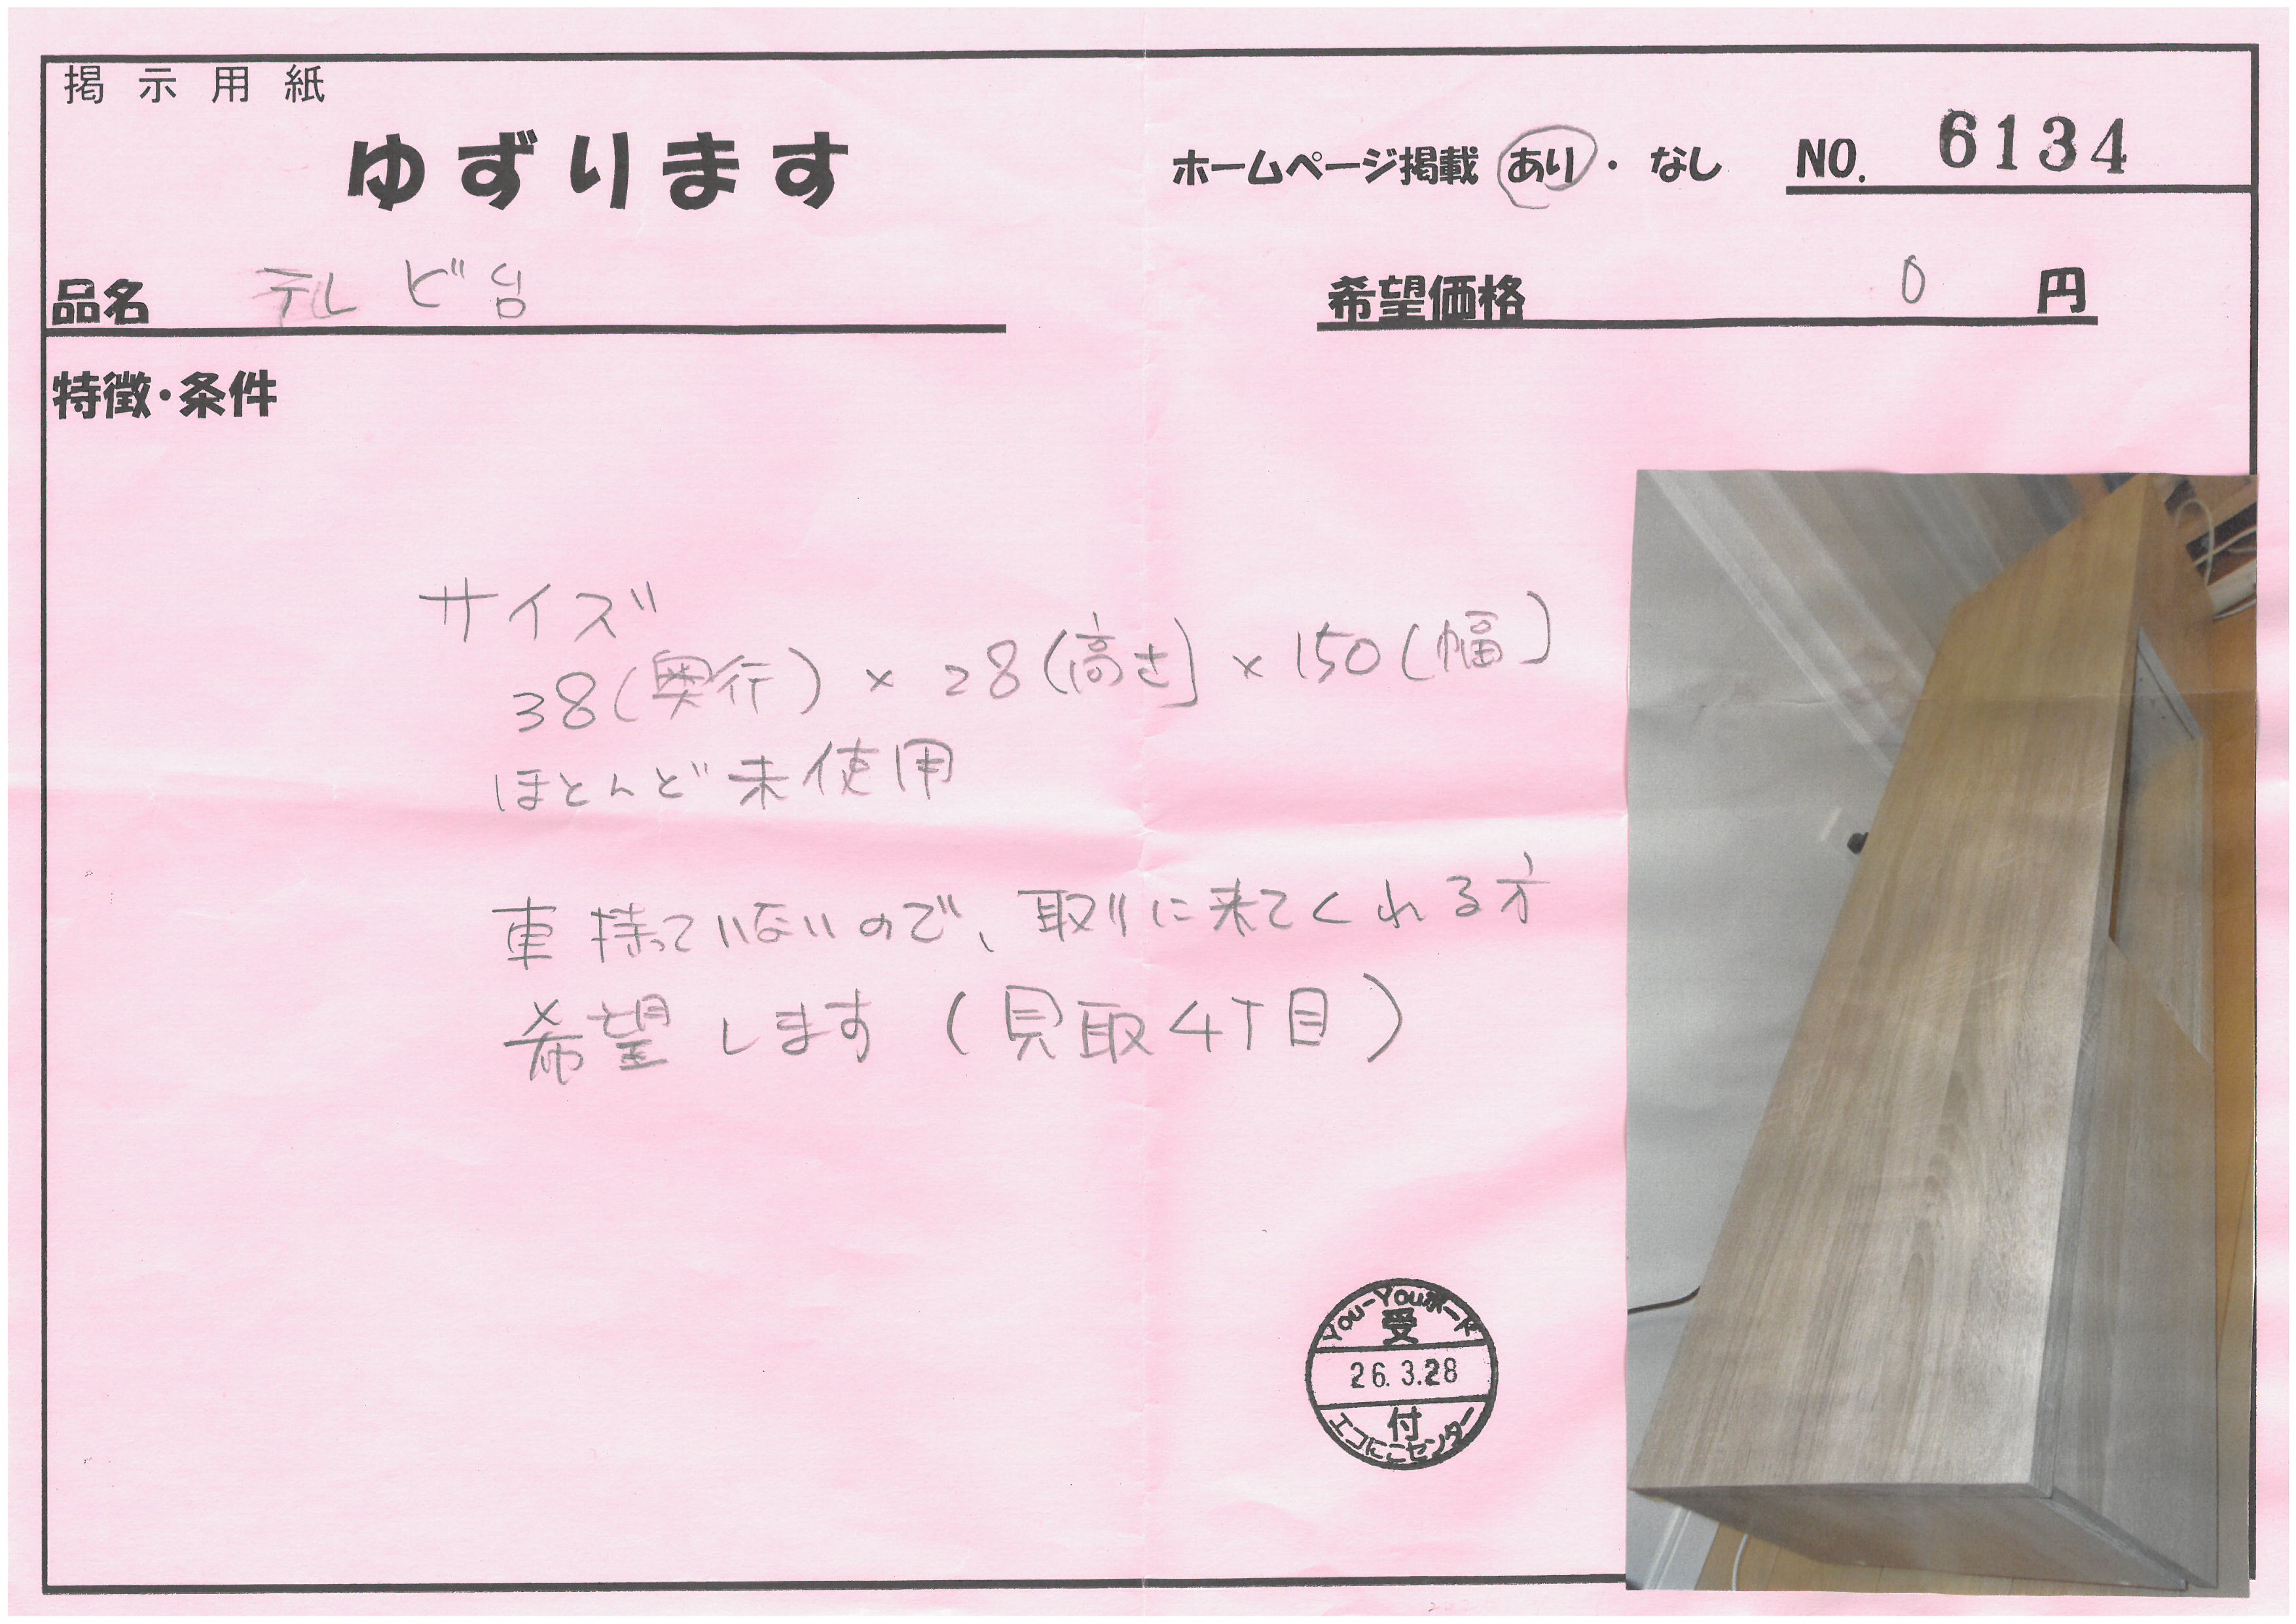 掲示用紙
ゆずります
ホームページ掲載 あり・なし NO. 6134
品名 テレビ台
希望価格 0 円
特徴・条件
サイズ
38(奥行)×28(高さ]×150(幅]
ほとんど未使用
車持っていないので、取りに来てくれる方
希望します(貝取4丁目)
You-Youボード
受
26.3.28
付
エコにこセンター